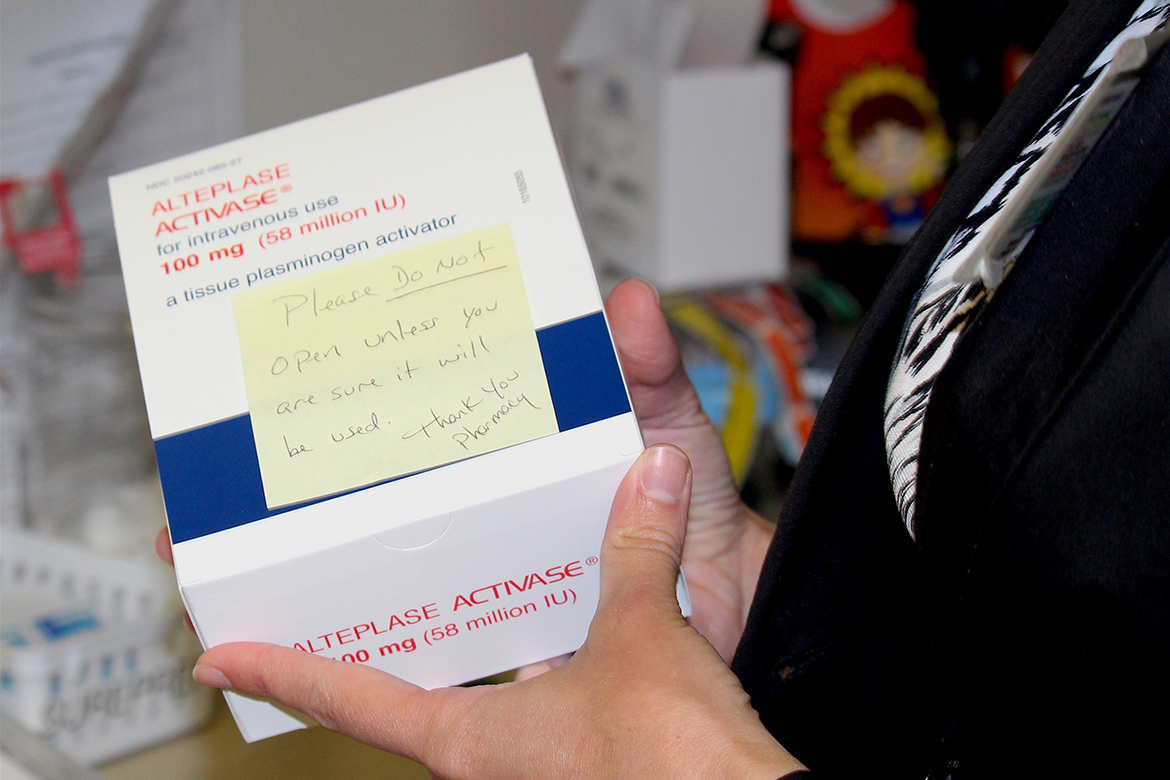 NDC 50242-085-27
ALTEPLASE
ACTIVASE®
for intravenous use
100 mg (58 million IU)
a tissue plasminogen activator
Please Do Not
open unless you
are sure it will
be used. Thank you
Pharmacy
ALTEPLASE ACTIVASE®
100 mg (58 million IU)